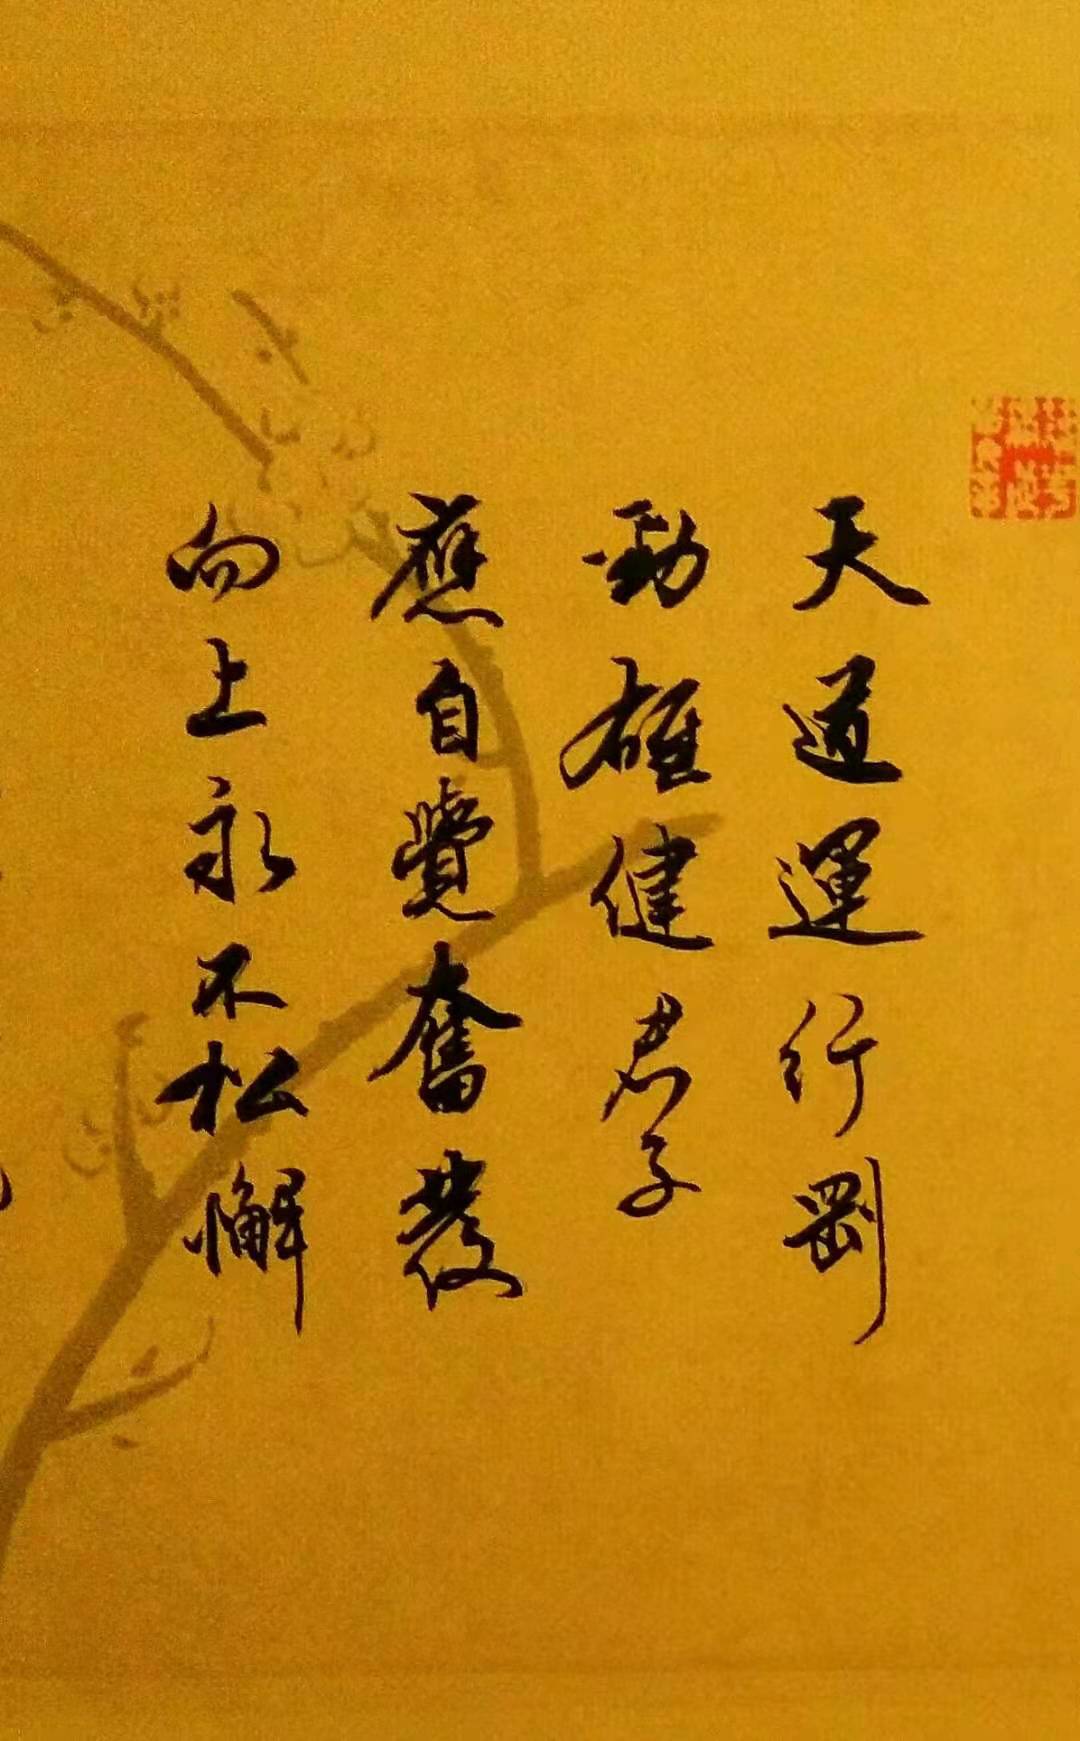 天道運行剛
勁雄健君子
應自覺奮發
向上永不松懈